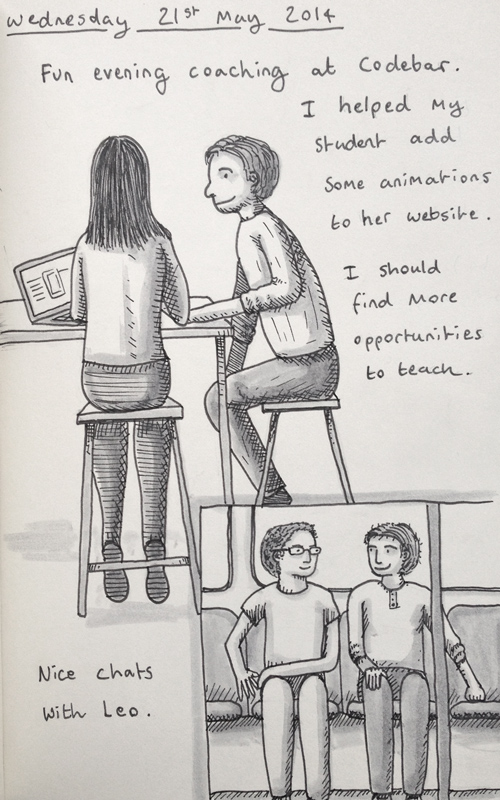 Wednesday 21st May 2014
Fun evening coaching at Codebar.
I helped my
student add
some animations
to her website.
I should
find more
opportunities
to teach.
Nice chats
with Leo.